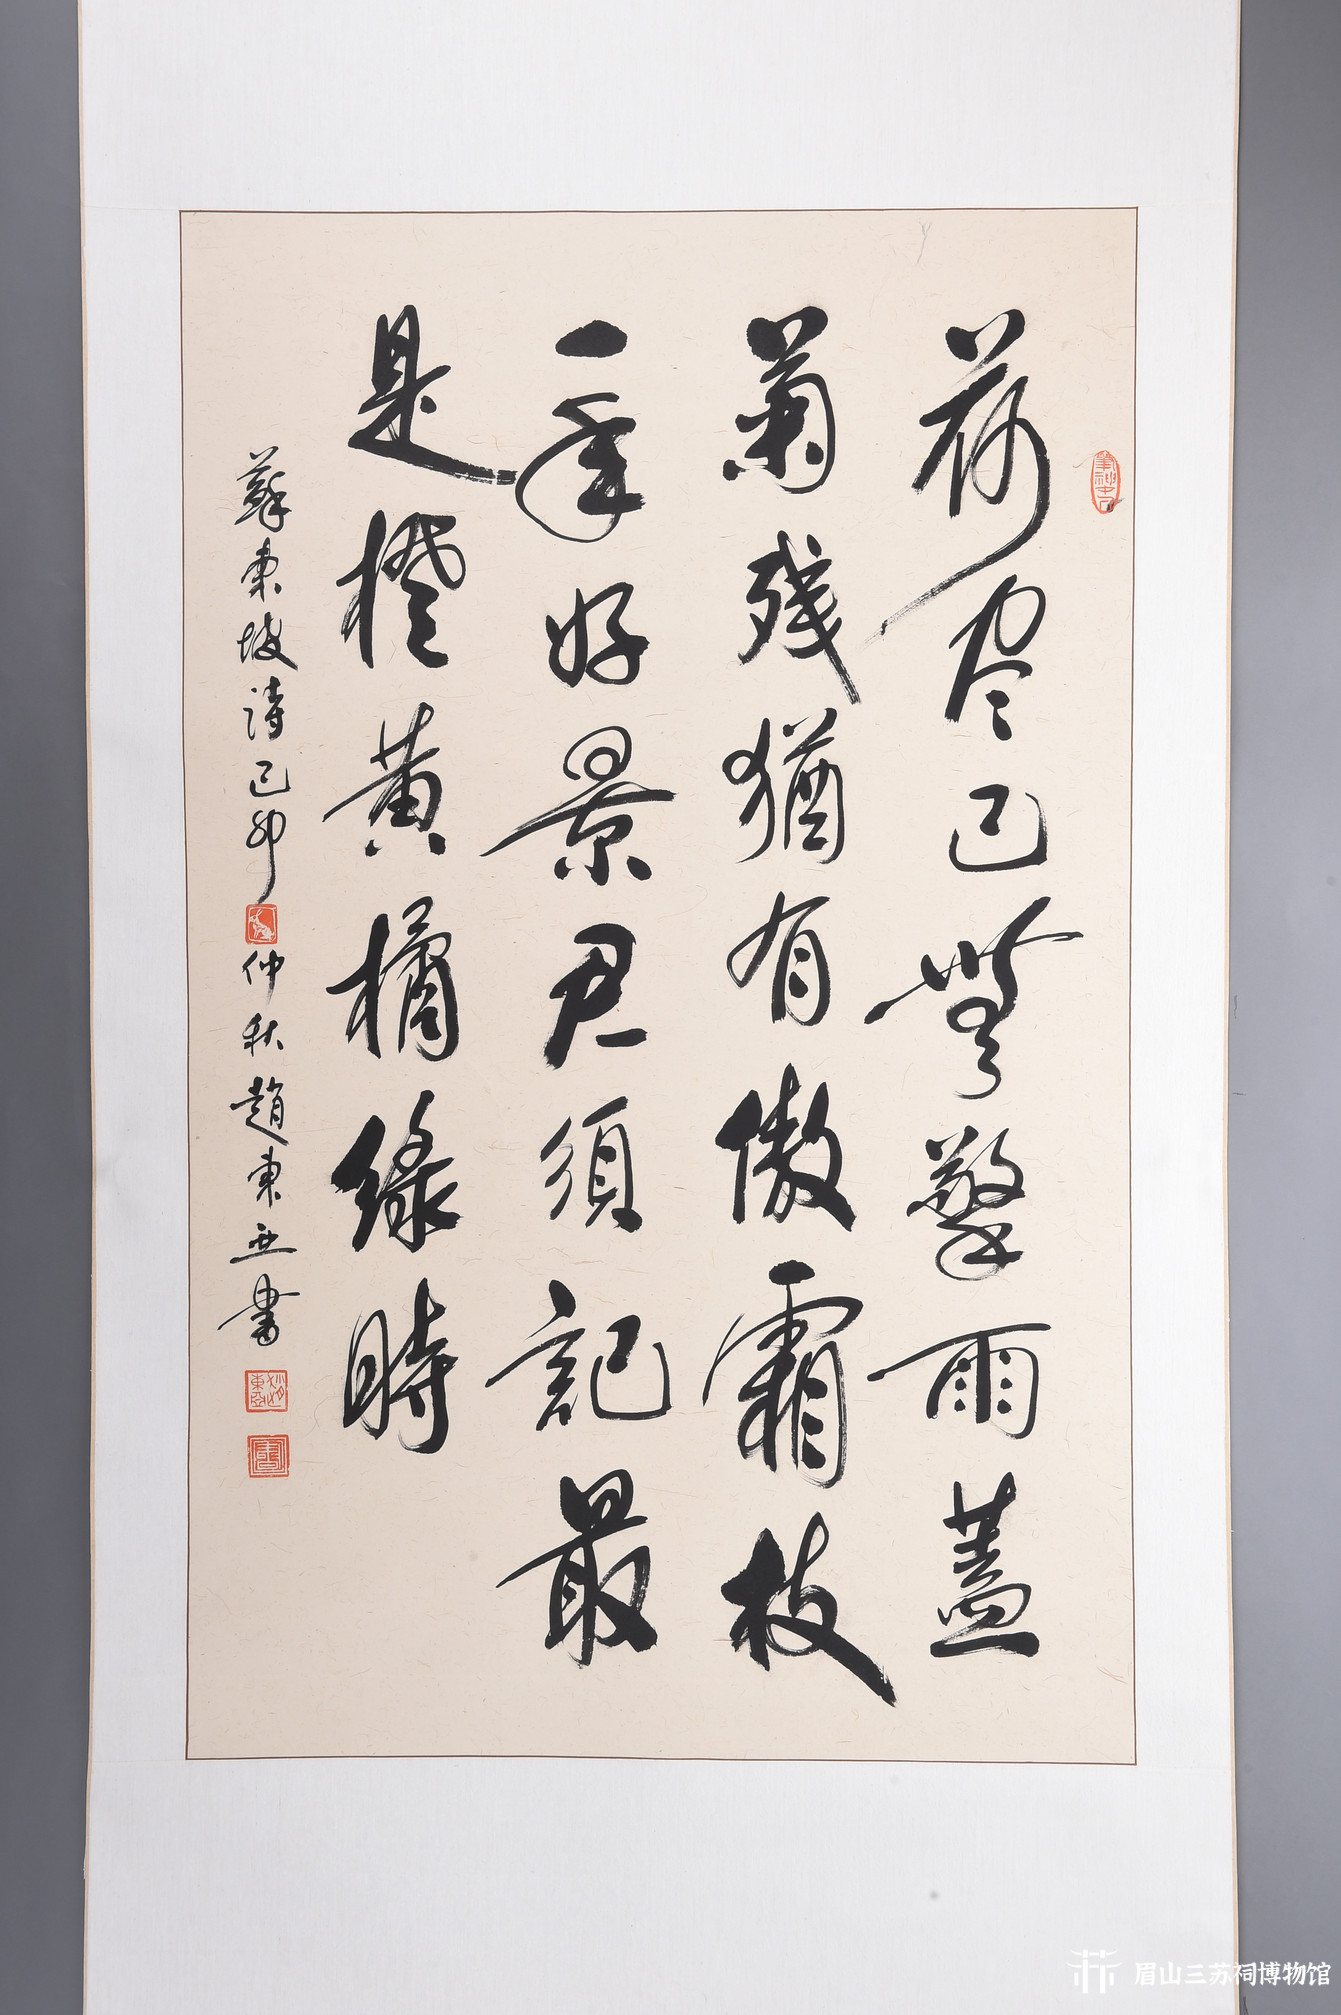 荷尽已無擎雨蓋
菊残猶有傲霜枝
一年好景君須記最
是橙黄橘緑時
蘇東坡詩己卯仲秋趙東亞書
眉山三苏祠博物馆